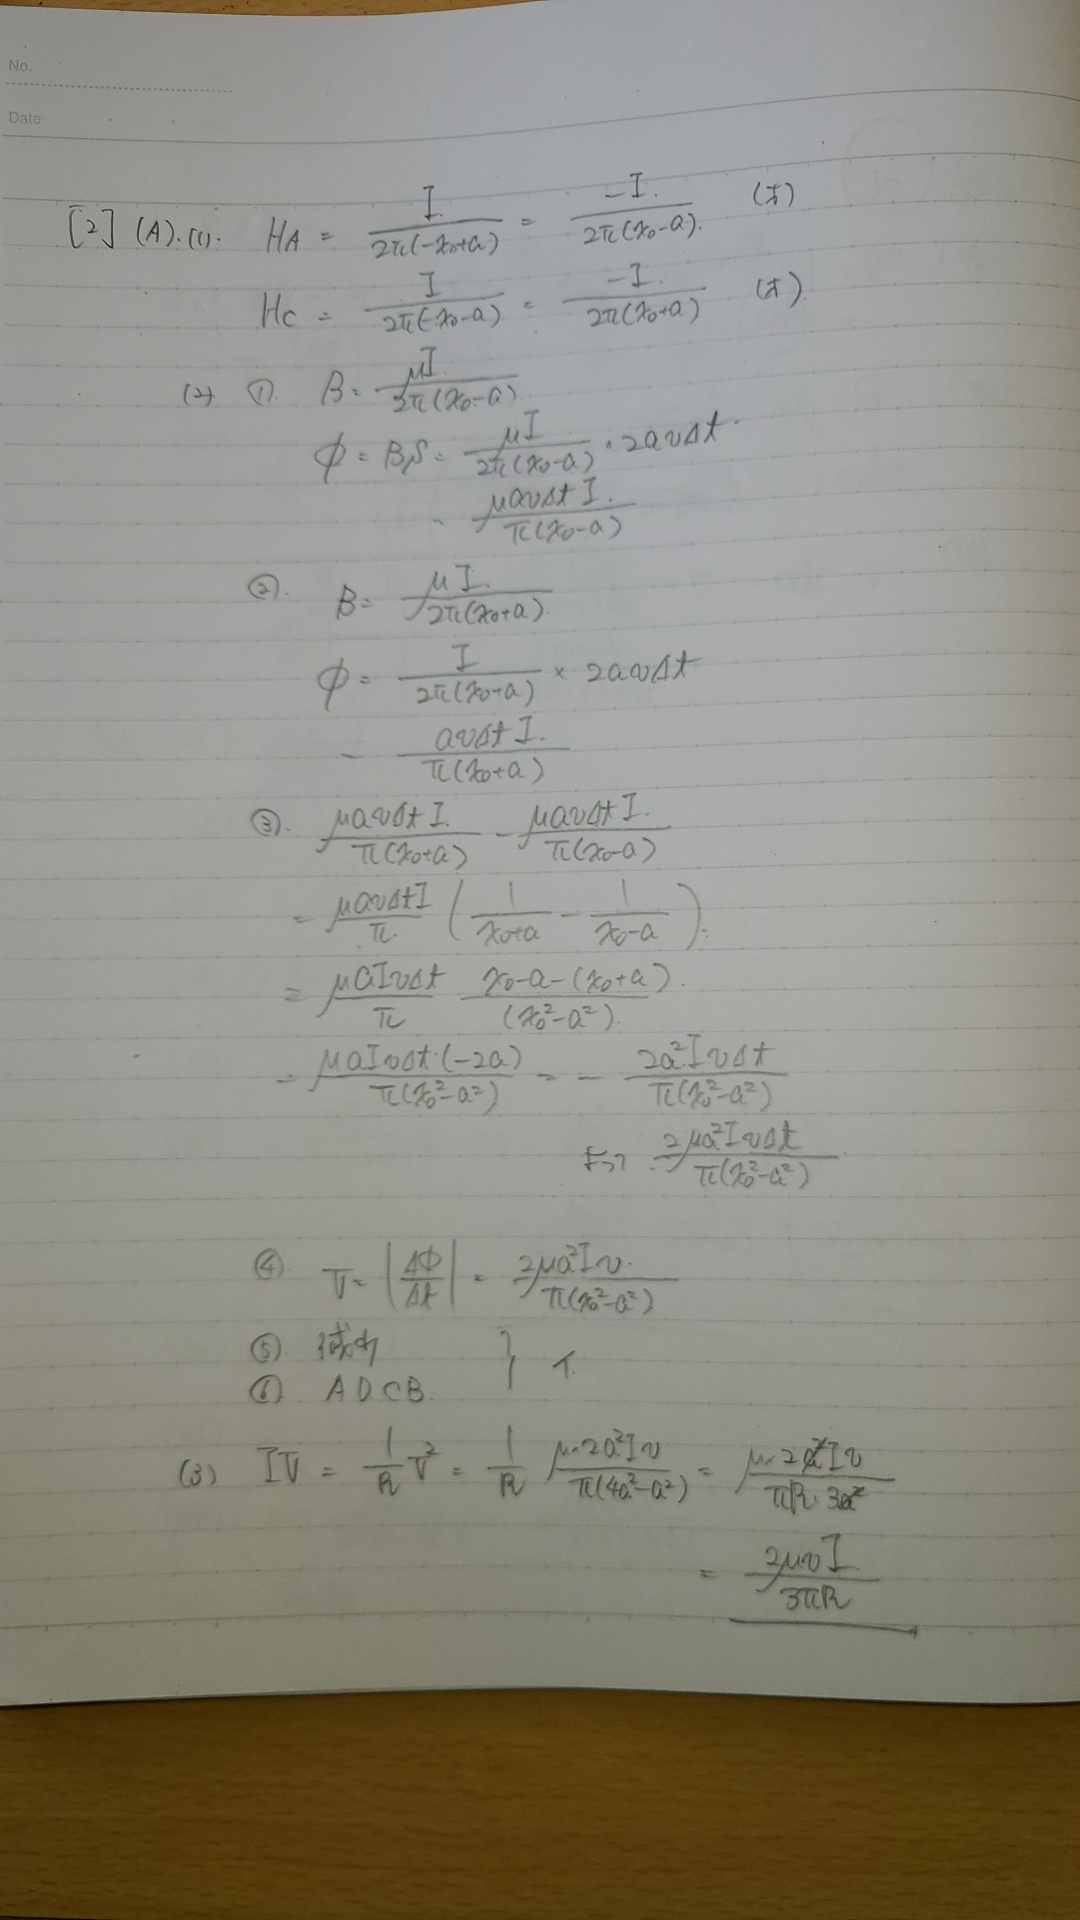 No.
Date
[2] (A).(1). H_A = I/(2π(-x₀+a)) = -I/(2π(x₀-a)). (オ)
H_C = I/(2π(-x₀-a)) = -I/(2π(x₀+a)) (オ)
(2) ①. B = μI/(2π(x₀-a))
Φ = B,S = μI/(2π(x₀-a)) · 2avΔt
μavΔt I/(π(x₀-a))
②. B = μI/(2π(x₀+a))
Φ = I/(2π(x₀+a)) × 2avΔt
avΔt I/(π(x₀+a))
③. μavΔt I/(π(x₀+a)) - μavΔt I/(π(x₀-a))
= μavΔtI/π (1/(x₀+a) - 1/(x₀-a))
= μaIvΔt/π (x₀-a-(x₀+a))/(x₀²-a²)
= μaIvΔt·(-2a)/(π(x₀²-a²)) = - 2a²IvΔt/(π(x₀²-a²))
よって 2μa²IvΔt/(π(x₀²-a²))
④ V = |ΔΦ/Δt| = 2μa²Iv/(π(x₀²-a²))
⑤ 減少 } イ
⑥ ADCB
(3) IV = 1/R V² = 1/R μ·2a²Iv/(π(4a²-a²)) = μ·2a²Iv/(πR·3a²)
= 2μvI/3πR